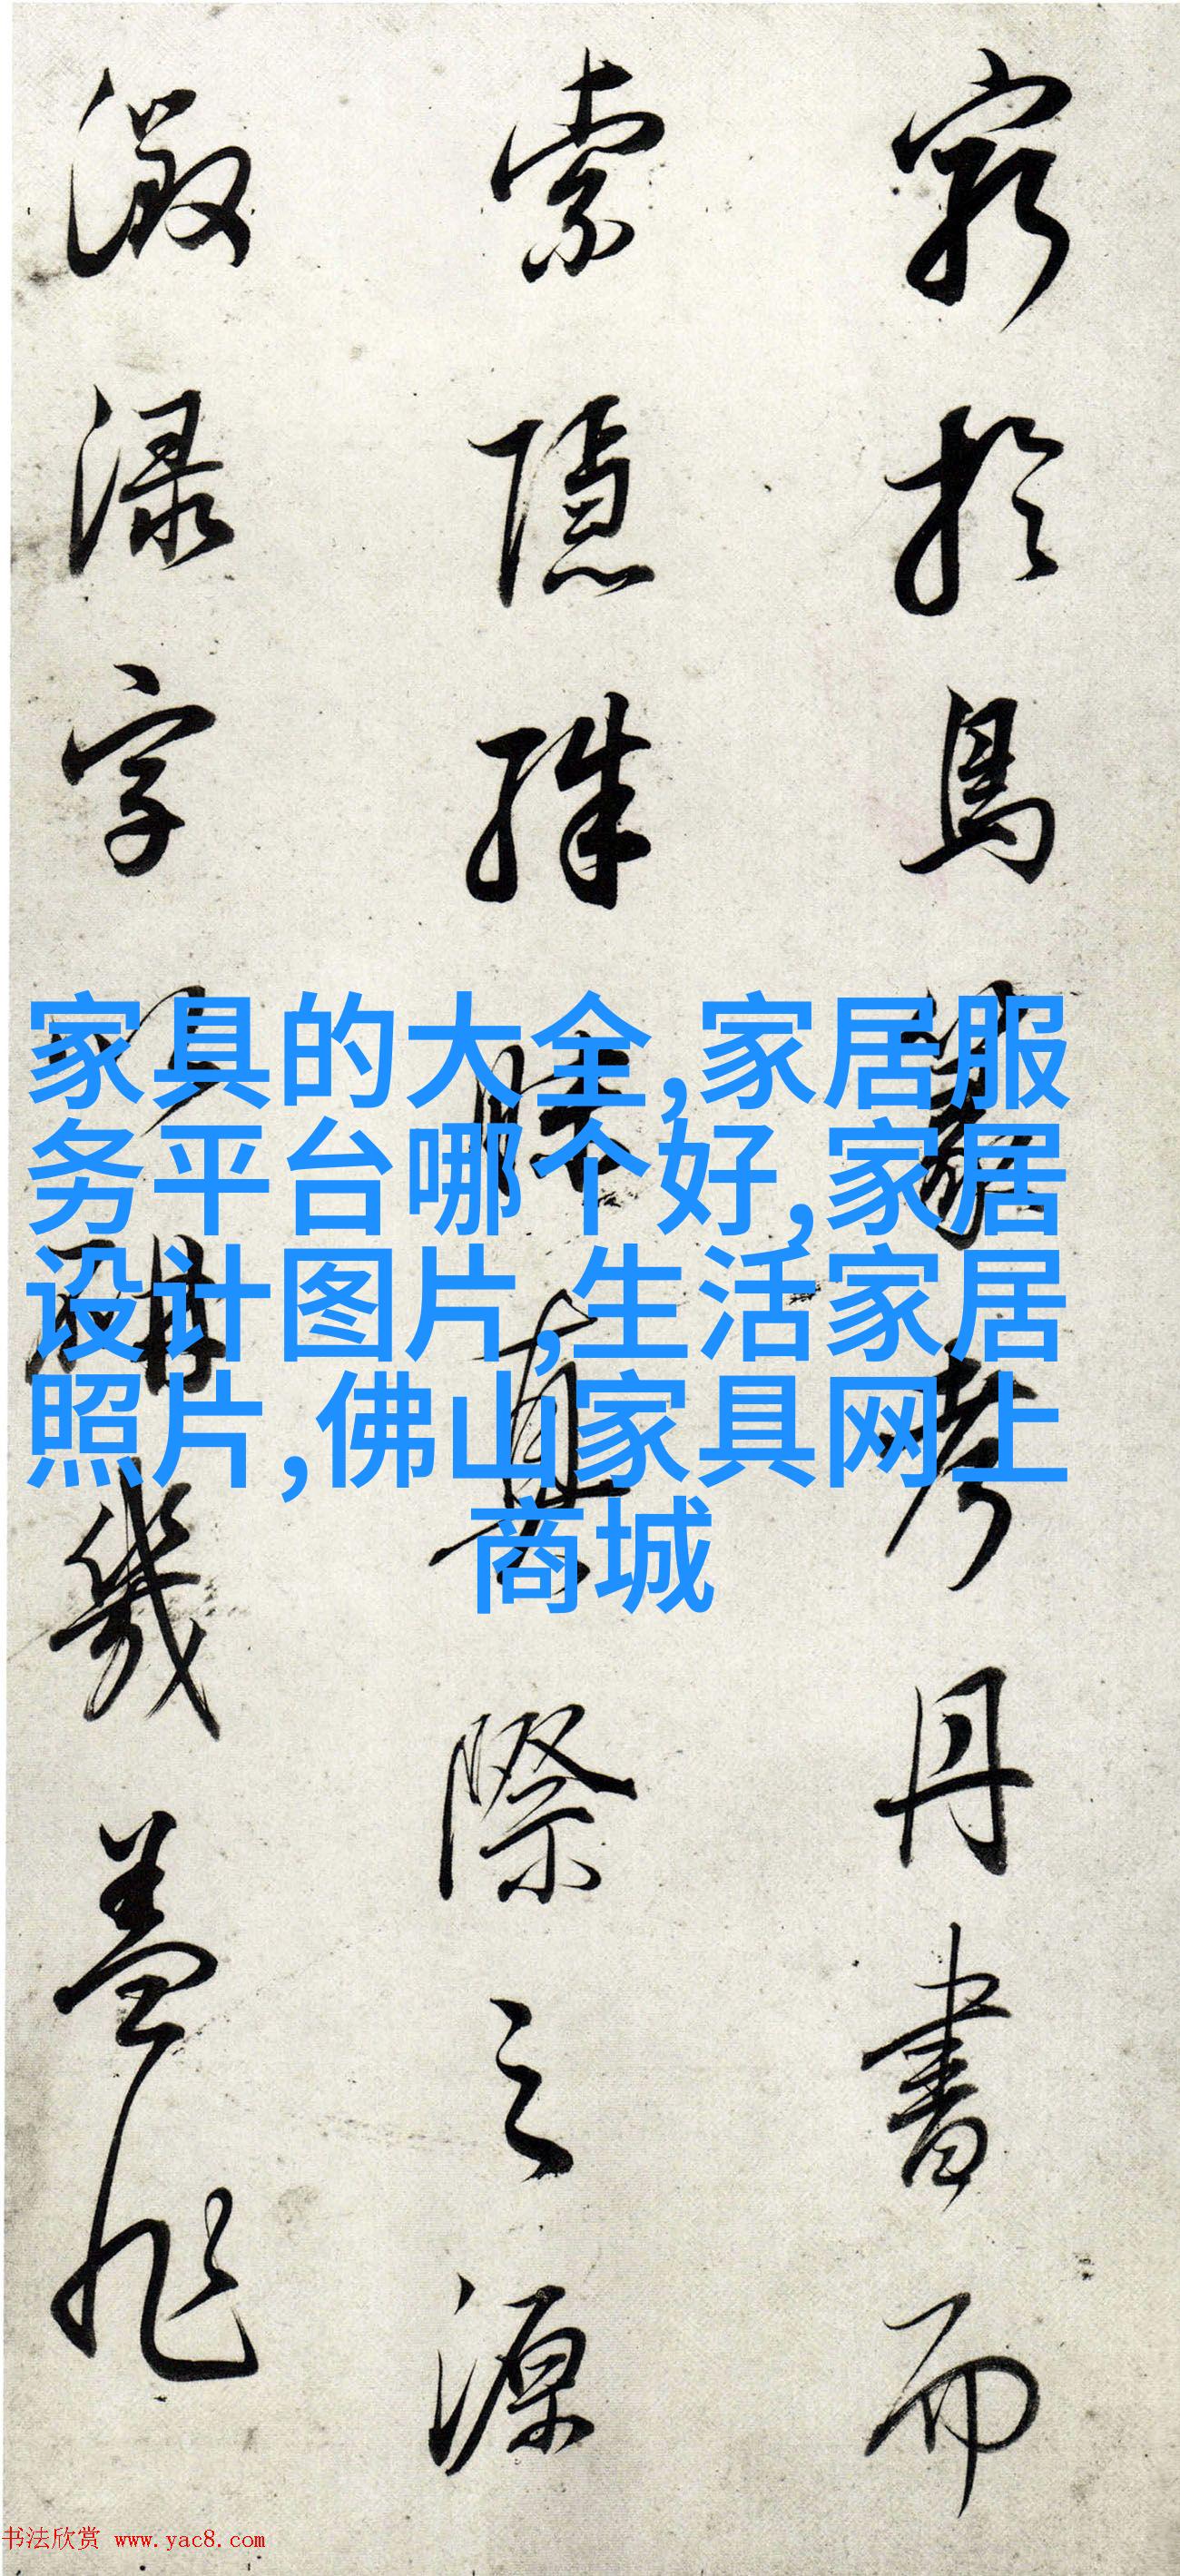 窮於鳥篆考丹書而
索隱殊昧真際之源
激渌字
幾蓋非
家具的大全,家居服
务平台哪个好,家居
设计图片,生活家居
照片,佛山家具网上
商城
书法欣赏 www.yac8.com